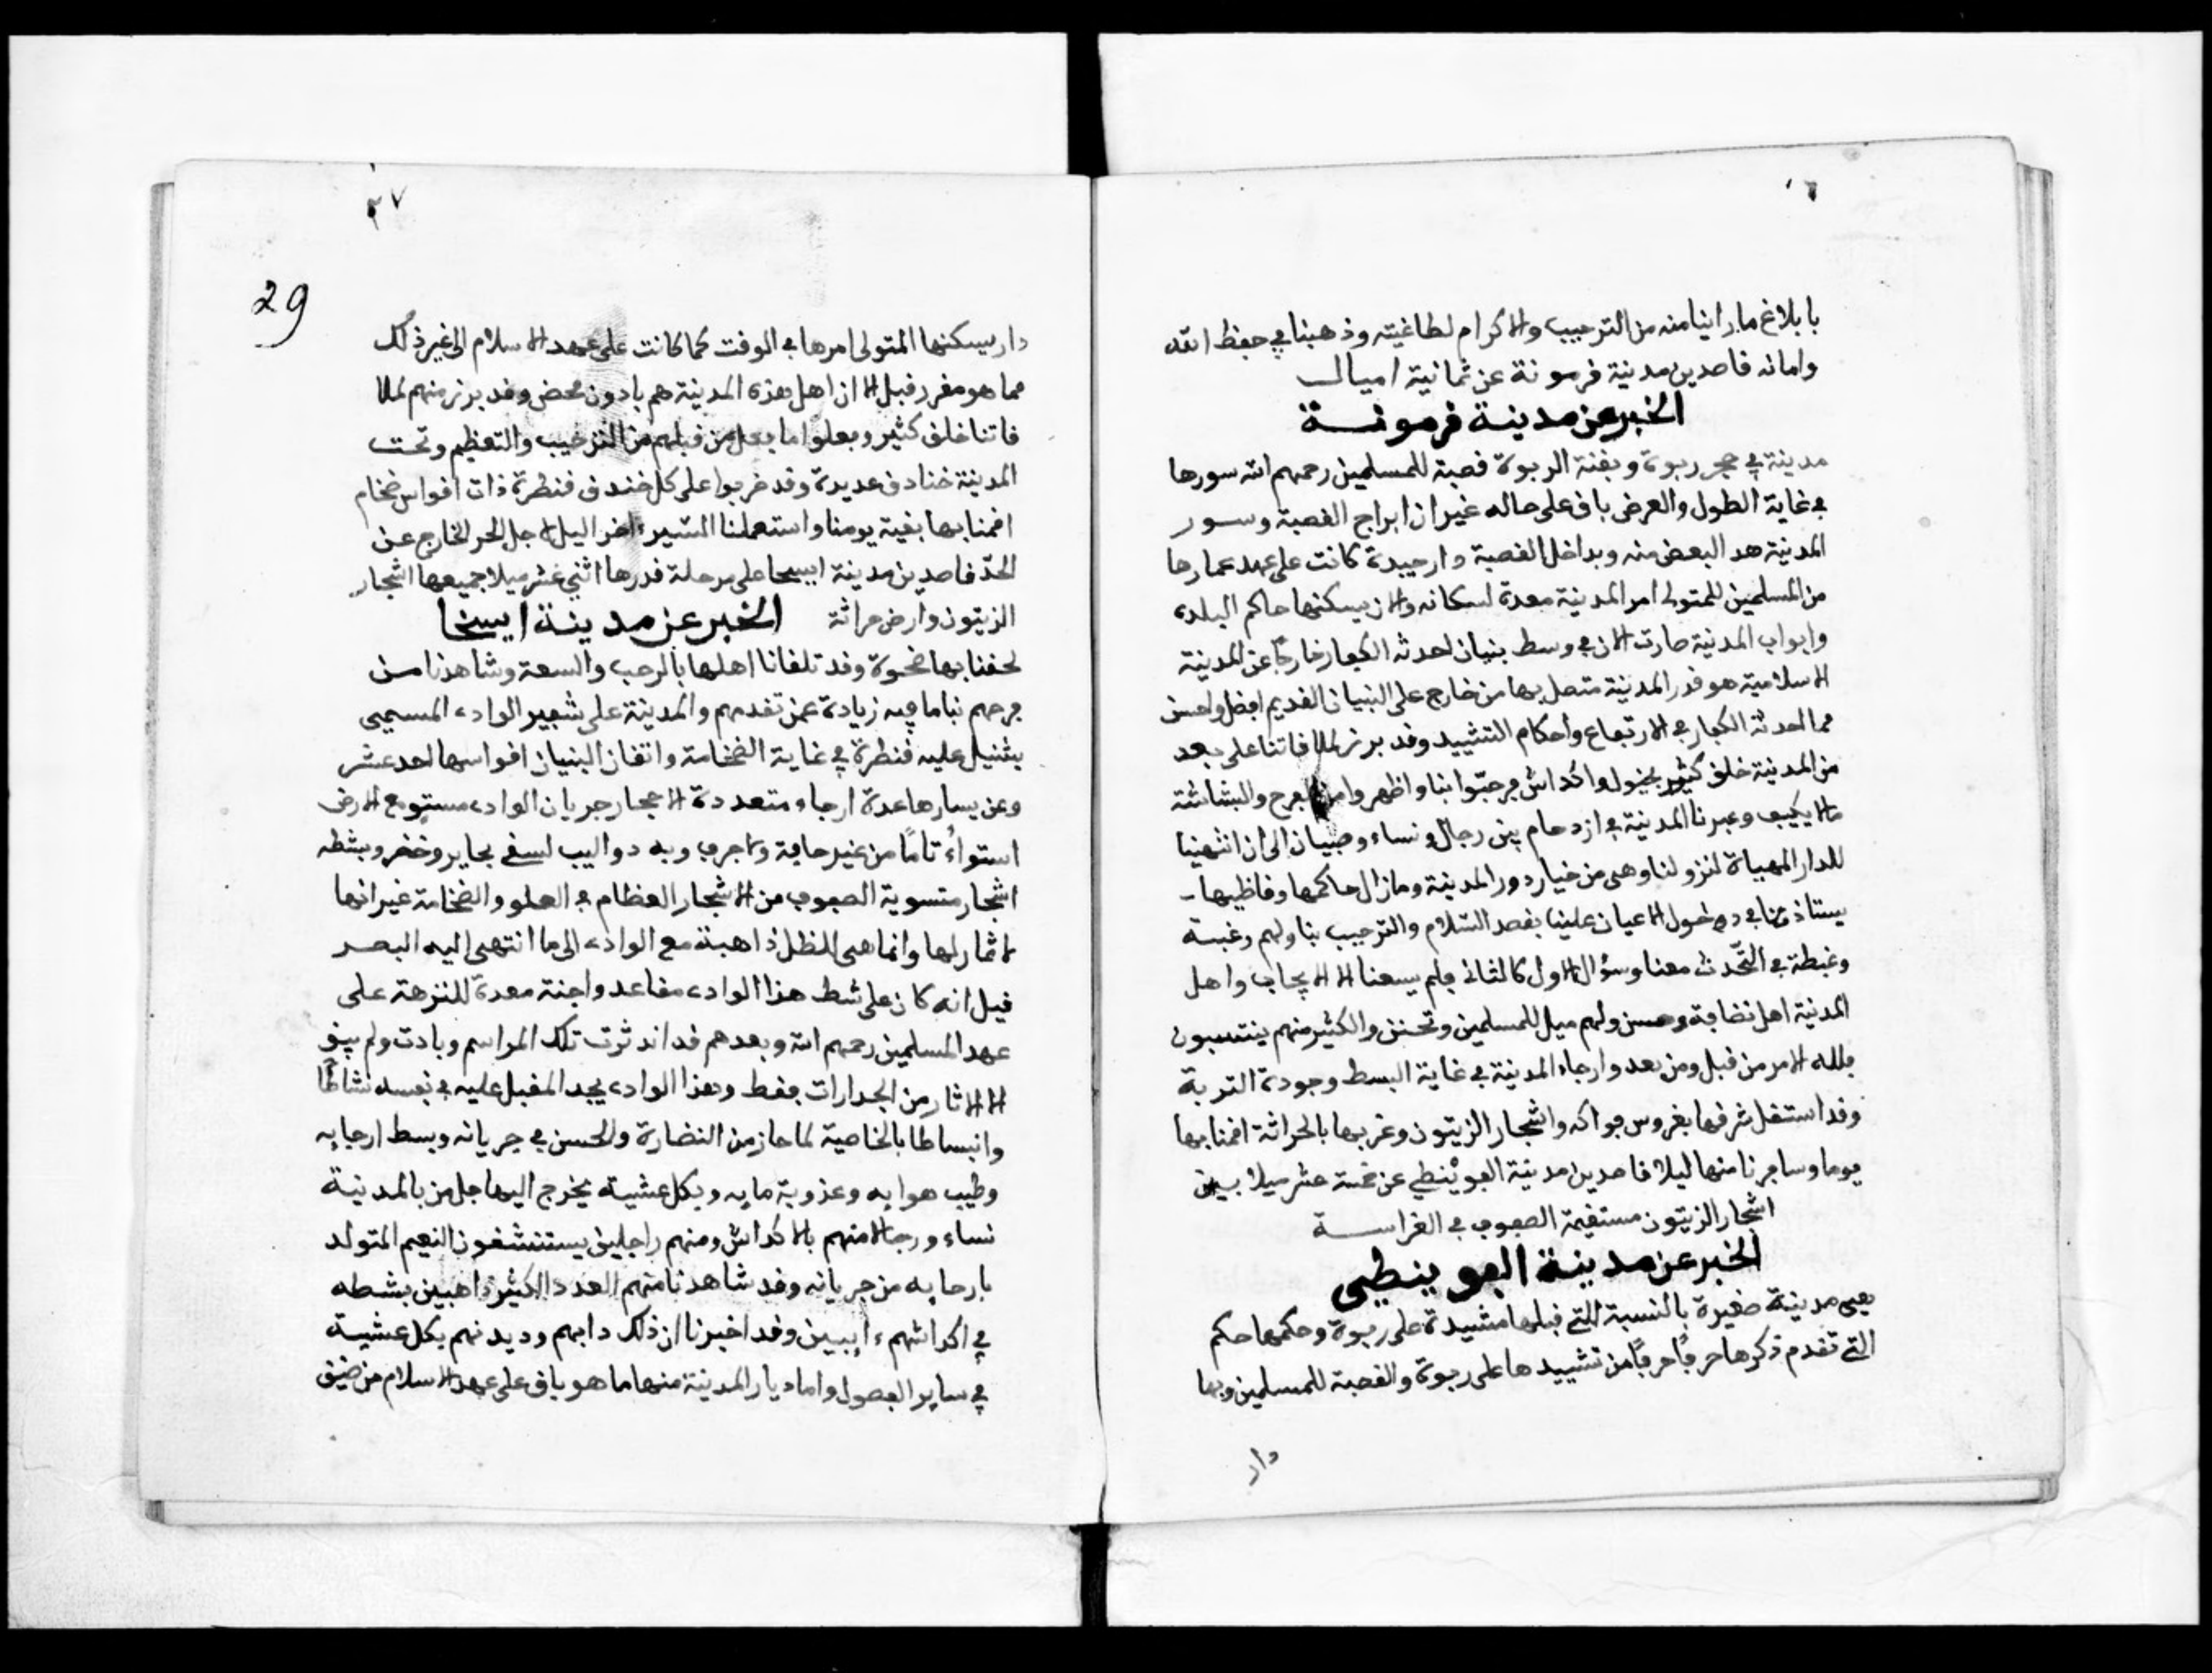 بابلاغ ما راينا منه من الترحيب والاكرام لطاغيته وذهبنا في حفظ الله
وامانه قاصدين مدينة قرمونة عن ثمانية اميال
الخبر عن مدينة قرمونة
مدينة في حجر ربوة وبقنة الربوة قصبة للمسلمين رحمهم الله سورها
في غاية الطول والعرض باق على حاله غير ان ابراج القصبة وسور
المدينة هد البعض منه وبداخل القصبة دار جيدة كانت على عهد عمارها
من المسلمين للمتولى امر المدينة معدة لسكانه والان يسكنها حاكم البلدة
وابواب المدينة صارت الان في وسط بنيان احدثه الكفار خارجا عن المدينة
الاسلامية هو قدر المدينة متصل بها من خارج على البنيان القديم افضل واحسن
مما احدثه الكفار في الارتفاع واحكام التشييد وقد برز لملاقاتنا على بعد
من المدينة خلق كثير بخيول واكداش فرحبّوا بنا واظهروا من الفرح والبشاشة
مالا يكيف وعبرنا المدينة في ازدحام بين رجال ونساء وصبيان الى ان انتهينا
للدار المهياة لنزولنا وهى من خيار دور المدينة ومازال حاكمها وقاظيها
يستاذننا في دخول الاعيان علينا بقصد السّلام والترحيب بنا ولهم رغبة
وغبطة في التّحدث معنا وسؤال الاول كالثانى فلم يسعنا الا الايجاب واهل
المدينة اهل نضافة وحسن ولهم ميل للمسلمين وتحنن والكثير منهم ينتسبون
فلله الامر من قبل ومن بعد وارجاء المدينة في غاية البسط وجودة التربة
وقد استقل شرقها بغروس فواكه واشجار الزيتون وغربها بالحراثة اقمنا بها
يوما وسافرنا منها ليلا قاصدين مدينة الفوينطي عن خمسة عشر ميلا بين
اشجار الزيتون مستقيمة الصفوف في الغراسة
الخبر عن مدينة الفوينطي
فهى مدينة صغيرة بالنسبة للتي قبلها مشيدة على ربوة وحكمها حكم
التي تقدم ذكرها حرفًا حرفًا من تشييدها على ربوة والقصبة للمسلمين وبها
دار
٢٧
29
دار يسكنها المتولى امرها في الوقت كما كانت على عهد الاسلام الى غير ذلك
مما هو مقرر قبل الا ان اهل هذه المدينة هم بادون محض وقد برز منهم لملا
قاتنا خلق كثير وفعلوا ما فعل من قبلهم من الترحيب والتعظيم وتحت
المدينة خنادق عديدة وقد ضربوا على كل خندق قنطرة ذات اقواس ضخام
اقمنا بها بقية يومنا واستعملنا السّير ءاخر اليل لاجل الحر الخارج عن
الحدّ قاصدين مدينة ايسخا على مرحلة قدرها اثنى عشر ميلا جميعها اشجار
الزيتون وارض حراثة الخبر عن مدينة ايسخا
لحقنا بها ضحوة وقد تلقانا اهلها بالرحب والسعة وشاهدنا من
فرحهم بنا ما فيه زيادة عمن تقدمهم والمدينة على شفير الوادى المسمى
بشنيل عليه قنطرة في غاية الضخامة واتقان البنيان اقواسها احد عشر
وعن يسارها عدة ارجاء متعددة الاحجار جريان الوادى مستو مع الارض
استواءً تامًا من غير حافة ولا جرف وبه دواليب لسقى بحاير وخضر وبشطه
اشجار متسوية الصفوف من الاشجار العظام في العلو والضخامة غير انها
لا ثمار لها وانما هى للظل ذاهبة مع الوادى الى ما انتهى اليه البصر
قيل انه كان على شط هذا الوادى مقاعد واجنة معدة للنزهة على
عهد المسلمين رحمهم الله وبعدهم قد اندثرت تلك المراسم وبادت ولم يبق
الا الاثار من الجدارات فقط وهذا الوادى يجد المقبل عليه في نفسه نشاطًا
وانبساطا بالخاصية لما حاز من النضارة والحسن في جريانه وبسط ارجايه
وطيب هوايه وعذوبة مايه وبكل عشية يخرج اليها جل من بالمدينة
نساء ورجالا منهم بالاكداش ومنهم راجلين يستنشقون النعيم المتولد
بارحايه من جريانه وقد شاهدنا منهم العدد الكثير ذاهبين بشطه
في اكداشهم ءايبين وقد اخبرنا ان ذلك دابهم وديدنهم بكل عشية
في ساير الفصول واما ديار المدينة منها ما هو باق على عهد الاسلام من ضيق